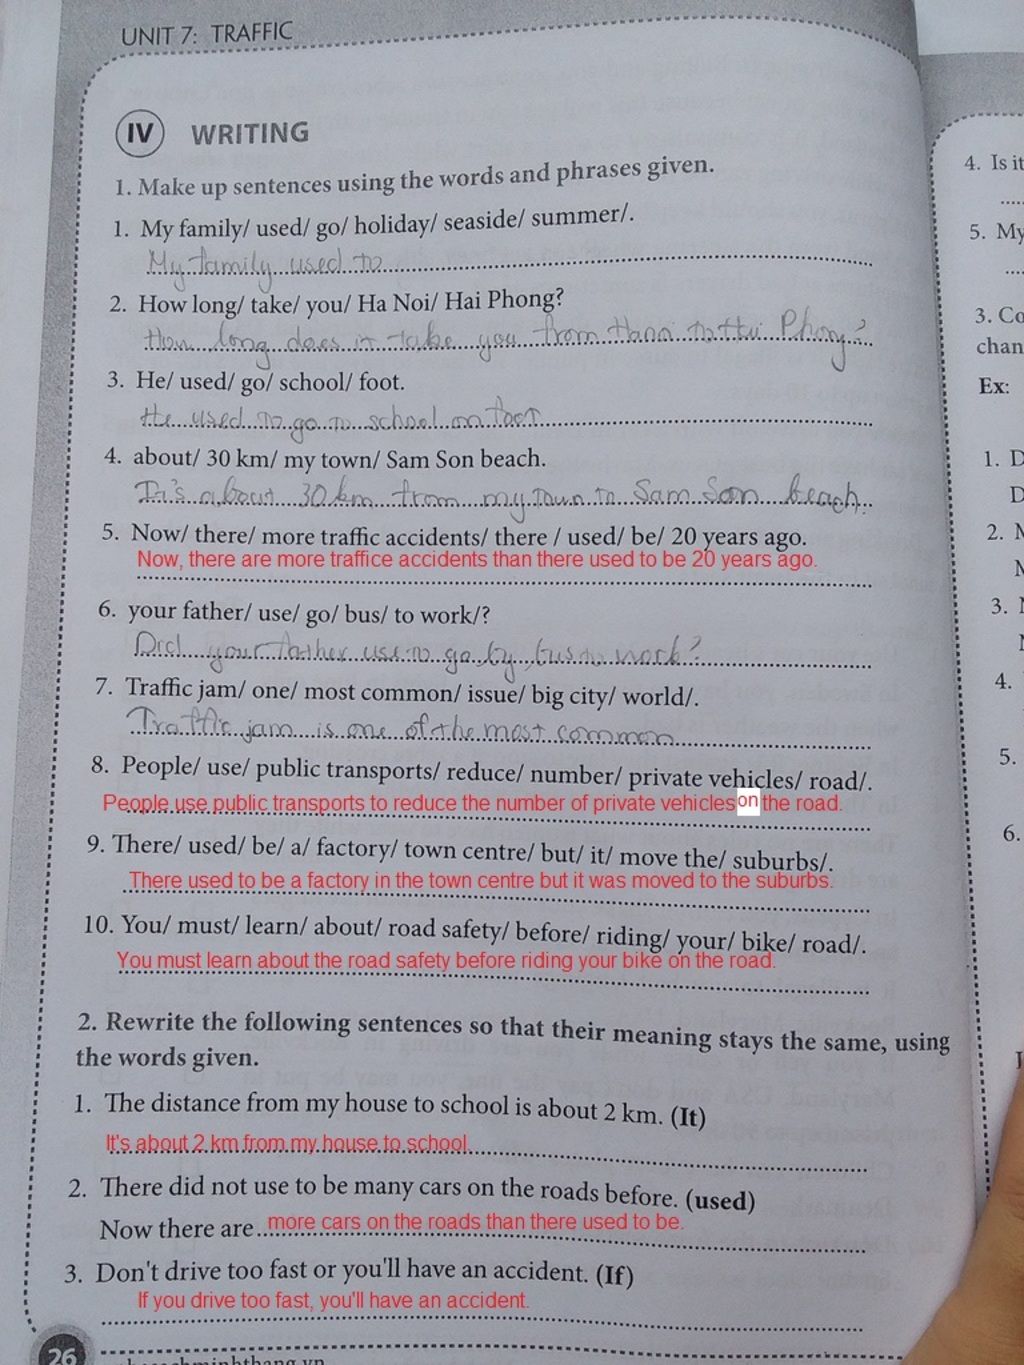 UNIT 7: TRAFFIC
IV WRITING
1. Make up sentences using the words and phrases given.
1. My family/ used/ go/ holiday/ seaside/ summer/.
My family used to
2. How long/ take/ you/ Ha Noi/ Hai Phong?
How long does it take you from Hanoi to Hai Phong?
3. He/ used/ go/ school/ foot.
He used to go to school on foot
4. about/ 30 km/ my town/ Sam Son beach.
It's about 30 km from my town to Sam Son beach.
5. Now/ there/ more traffic accidents/ there / used/ be/ 20 years ago.
Now, there are more traffice accidents than there used to be 20 years ago.
6. your father/ use/ go/ bus/ to work/?
Did your father use to go by bus to work?
7. Traffic jam/ one/ most common/ issue/ big city/ world/.
Traffic jam is one of the most common
8. People/ use/ public transports/ reduce/ number/ private vehicles/ road/.
People use public transports to reduce the number of private vehicles on the road.
9. There/ used/ be/ a/ factory/ town centre/ but/ it/ move the/ suburbs/.
There used to be a factory in the town centre but it was moved to the suburbs.
10. You/ must/ learn/ about/ road safety/ before/ riding/ your/ bike/ road/.
You must learn about the road safety before riding your bike on the road.
2. Rewrite the following sentences so that their meaning stays the same, using
the words given.
1. The distance from my house to school is about 2 km. (It)
It's about 2 km from my house to school.
2. There did not use to be many cars on the roads before. (used)
Now there are more cars on the roads than there used to be.
3. Don't drive too fast or you'll have an accident. (If)
If you drive too fast, you'll have an accident.
26
4. Is it
5. My
3. Co
chan
Ex:
1. D
D
2.
3.
4.
5.
6.